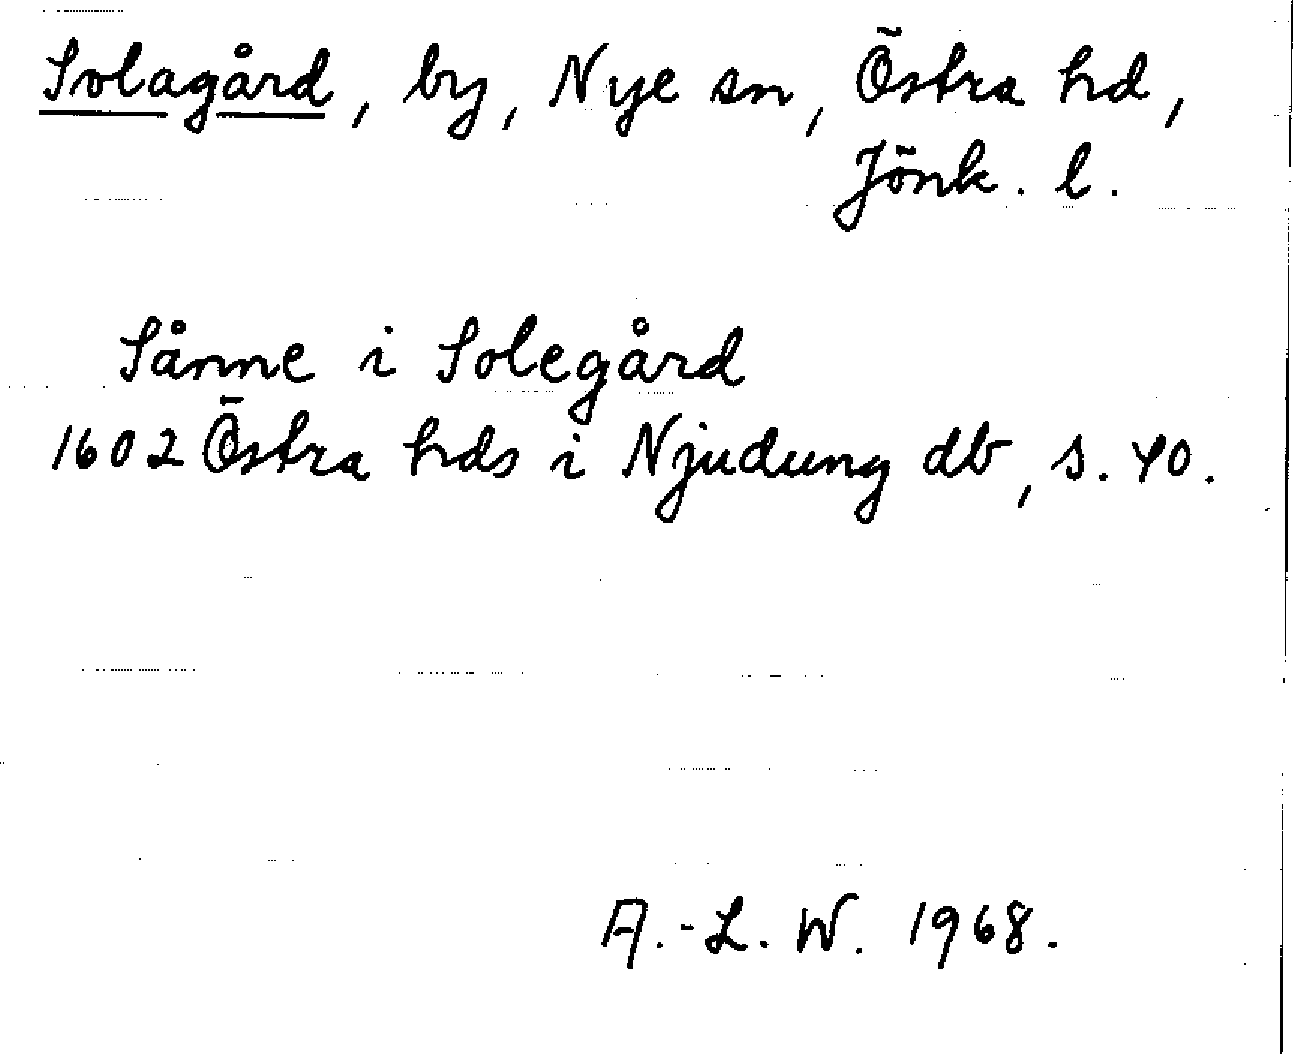 Solagård, by, Nye sn, Östra hd,
Jönk. l.
Sånne i Solegård
1602 Östra hds i Njudung db, s. 40.
A.-L. W. 1968.